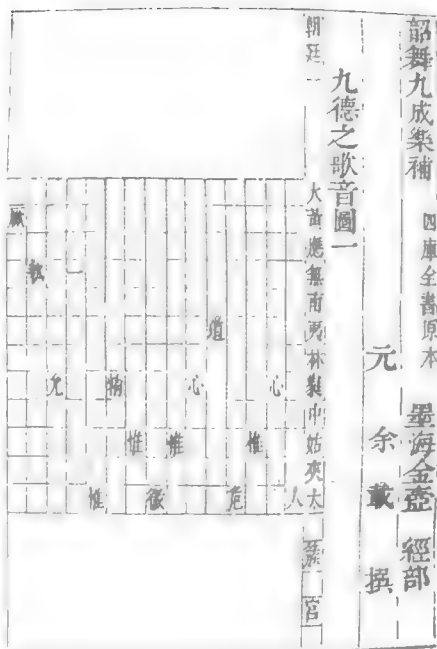 韶舞九成樂補 四庫全書原本 墨海金壺 經部
元 余載 撰
九德之歌音圖一
朝廷一 大黃應無南夷林蕤中姑夾太 簇宮
人
心
惟
危
道
心
惟
微
惟
精
惟
一
允
執
厥